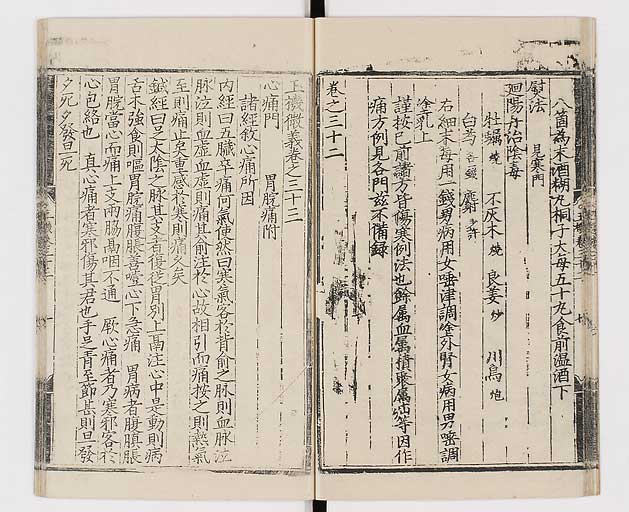 八箇為末酒糊丸桐子大每五十丸食前温酒下
熨法 見寒門
廻陽丹治陰毒
牡蠣燒 不灰木燒 良姜炒 川烏炮
白芍各錢 麝香少許
右細末每用一錢男病用女唾津調塗外腎女病用男唾調
塗乳上
謹按已前諸方皆傷寒例法也餘属血属積聚属疝等因作
痛方例見各門兹不備録
卷之三十二
玉機微義卷之三十三
心痛門 胃脘痛附
諸經敘心痛所因
內經曰五臟卒痛何氣使然曰寒氣客於背俞之脉則血脉泣
脉泣則血虛血虛則痛其俞注於心故相引而痛按之則熱氣
至則痛止矣重感於寒則痛久矣
鍼經曰足太陰之脉其支者復從胃別上鬲注心中是動則病
舌本強食則嘔胃脘痛腹脹善噫心下急痛 胃病者腹䐜脹
胃脘當心而痛上支兩脇鬲咽不通 厥心痛者乃寒邪客於
心包絡也 真心痛者寒邪傷其君也手足青至節甚則旦發
夕死夕發旦死